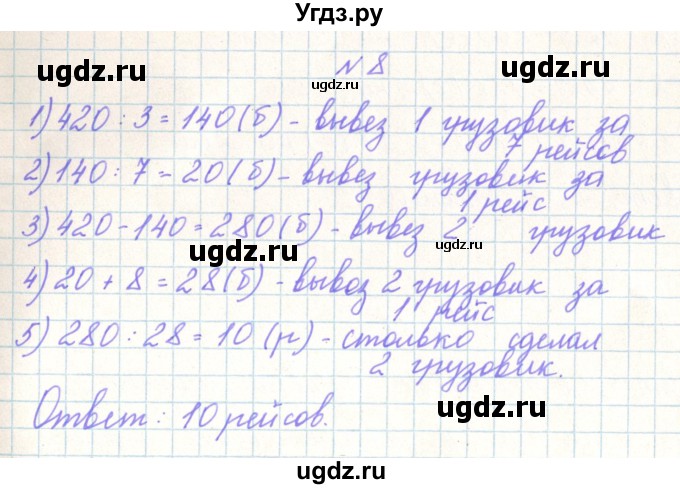 Угдз.ру
ugdz.ru ugdz.ru ugdz.ru
№8
1) 420 : 3 = 140 (б) - вывез 1 грузовик за
7 рейсов
2) 140 : 7 - 20 (б) - вывез грузовик за
1 рейс
3) 420 - 140 = 280 (б) - вывез 2 грузовик
ugdz.ru ugdz.ru
4) 20 + 8 = 28 (б) - вывоз 2 грузовик за
1 рейс
5) 280 : 28 = 10 (р) - столько сделал
ugdz.ru ugdz.ru
2 грузовик.
ugdz.ru
Ответ: 10 рейсов.
ugdz.ru
ugdz.ru